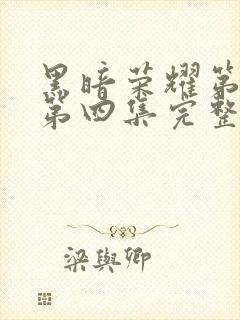 黑暗荣耀第
第四集完整
梁與卿